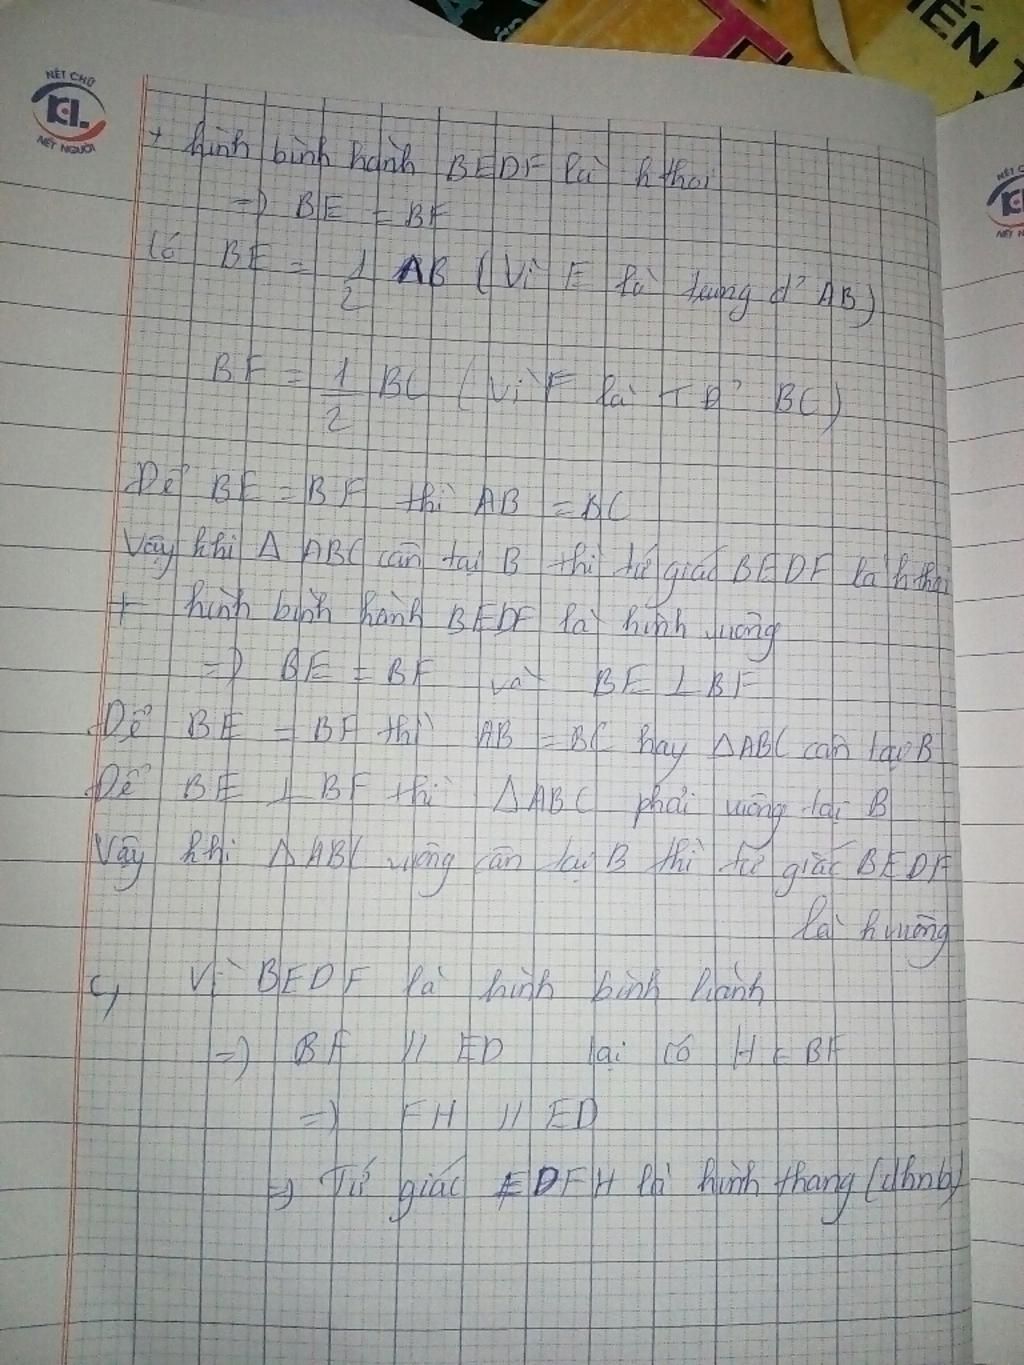 NÉT CHỮ
KL
NÉT NGƯỜI
+ hình bình hành BEDF là h thoi
=> BE = BF
Có BE = 1/2 AB (Vì E là trung đ² AB)
BF = 1/2 BC (Vì F là TĐ² BC)
Để BE = BF thì AB = BC
Vậy khi Δ ABC cân tại B thì tứ giác BEDF là h thoi
+ hình bình hành BEDF là hình vuông
=> BE = BF và BE ⊥ BF
Để BE = BF thì AB = BC hay ΔABC cân tại B
Để BE ⊥ BF thì ΔABC phải vuông tại B
Vậy khi ΔABC vuông cân tại B thì tứ giác BEDF
là h vuông
c, Vì BEDF là hình bình hành
=> BF // ED lại có H ∈ BF
=> FH // ED
=> Tứ giác EDFH là hình thang (dhnb)